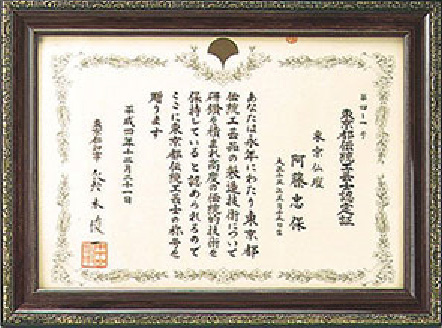 東京都伝統工芸士認定証
東京仏壇
阿藤忠保
あなたは永年にわたり東京都
伝統工芸品の製造技術について
研鑽を積まれ高度の伝統的技術を
保持していると認められるので
ここに東京都伝統工芸士の称号を
贈ります
東京都知事 鈴木俊一